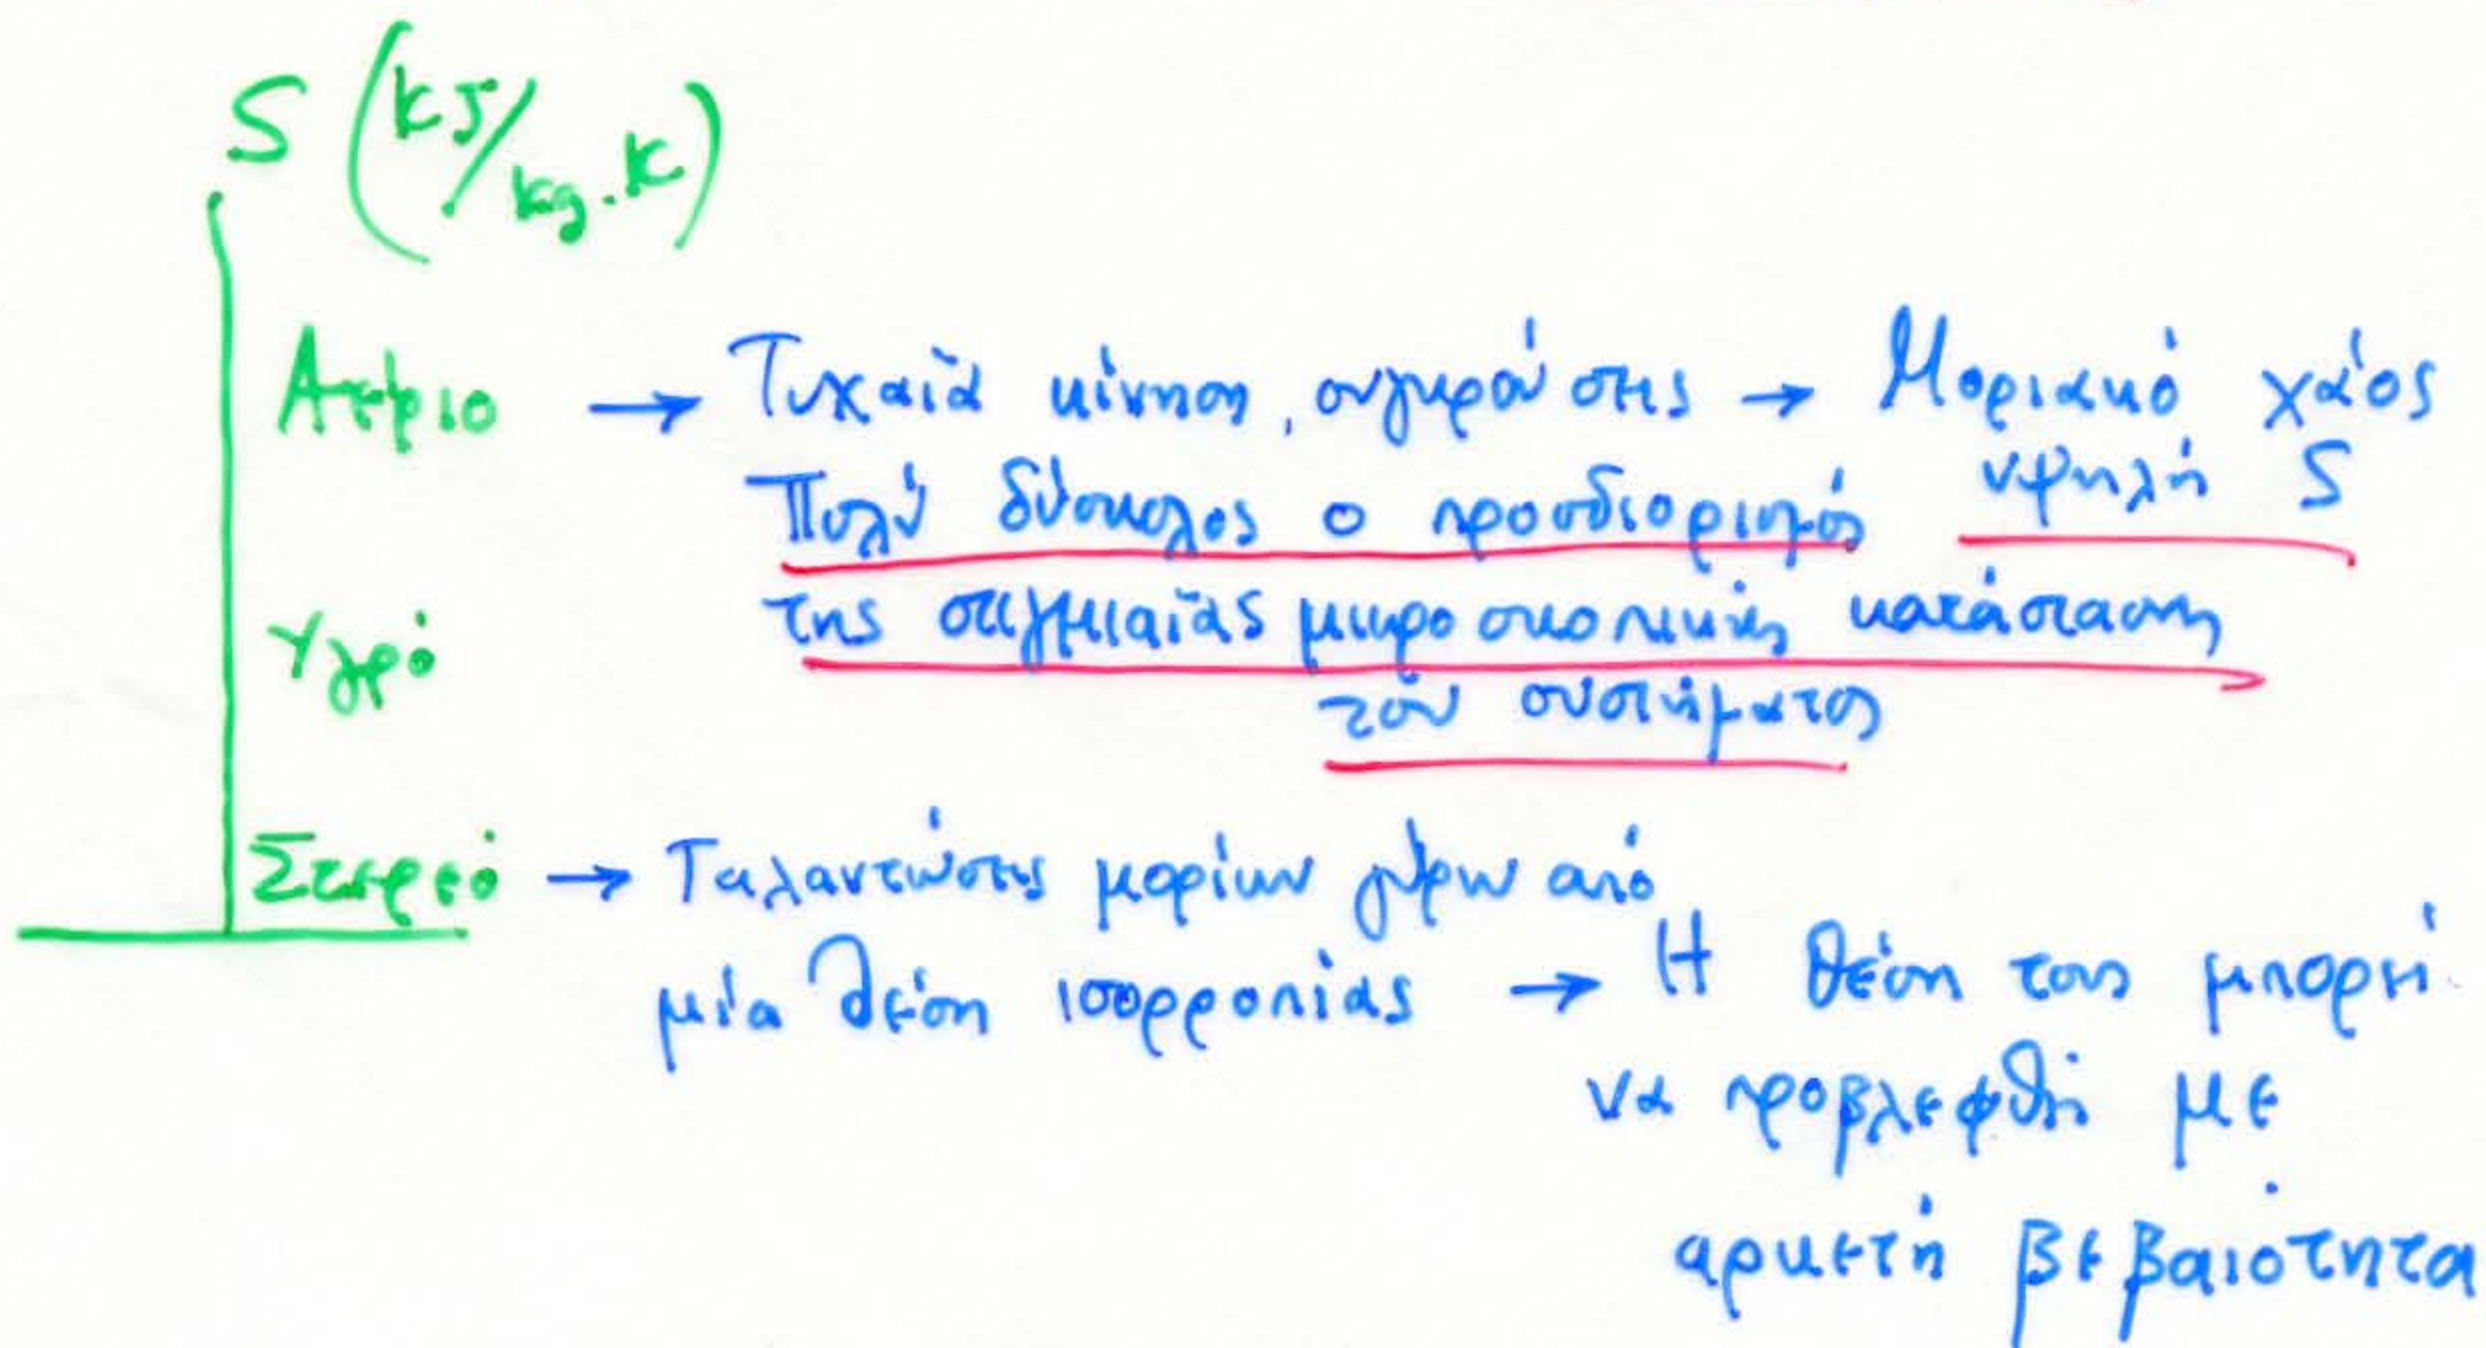 S (kJ/kg.K)
Αέριο → Τυχαία κίνηση, συγκρούσεις → Μοριακό χάος
Πολύ δύσκολος ο προσδιορισμός υψηλή S
της στιγμιαίας μικροσκοπικής κατάστασης
του συστήματος
Υγρό
Στερεό → Ταλαντώσεις μορίων γύρω από
μία θέση ισορροπίας → Η θέση τους μπορεί
να προβλεφθεί με
αρκετή βεβαιότητα